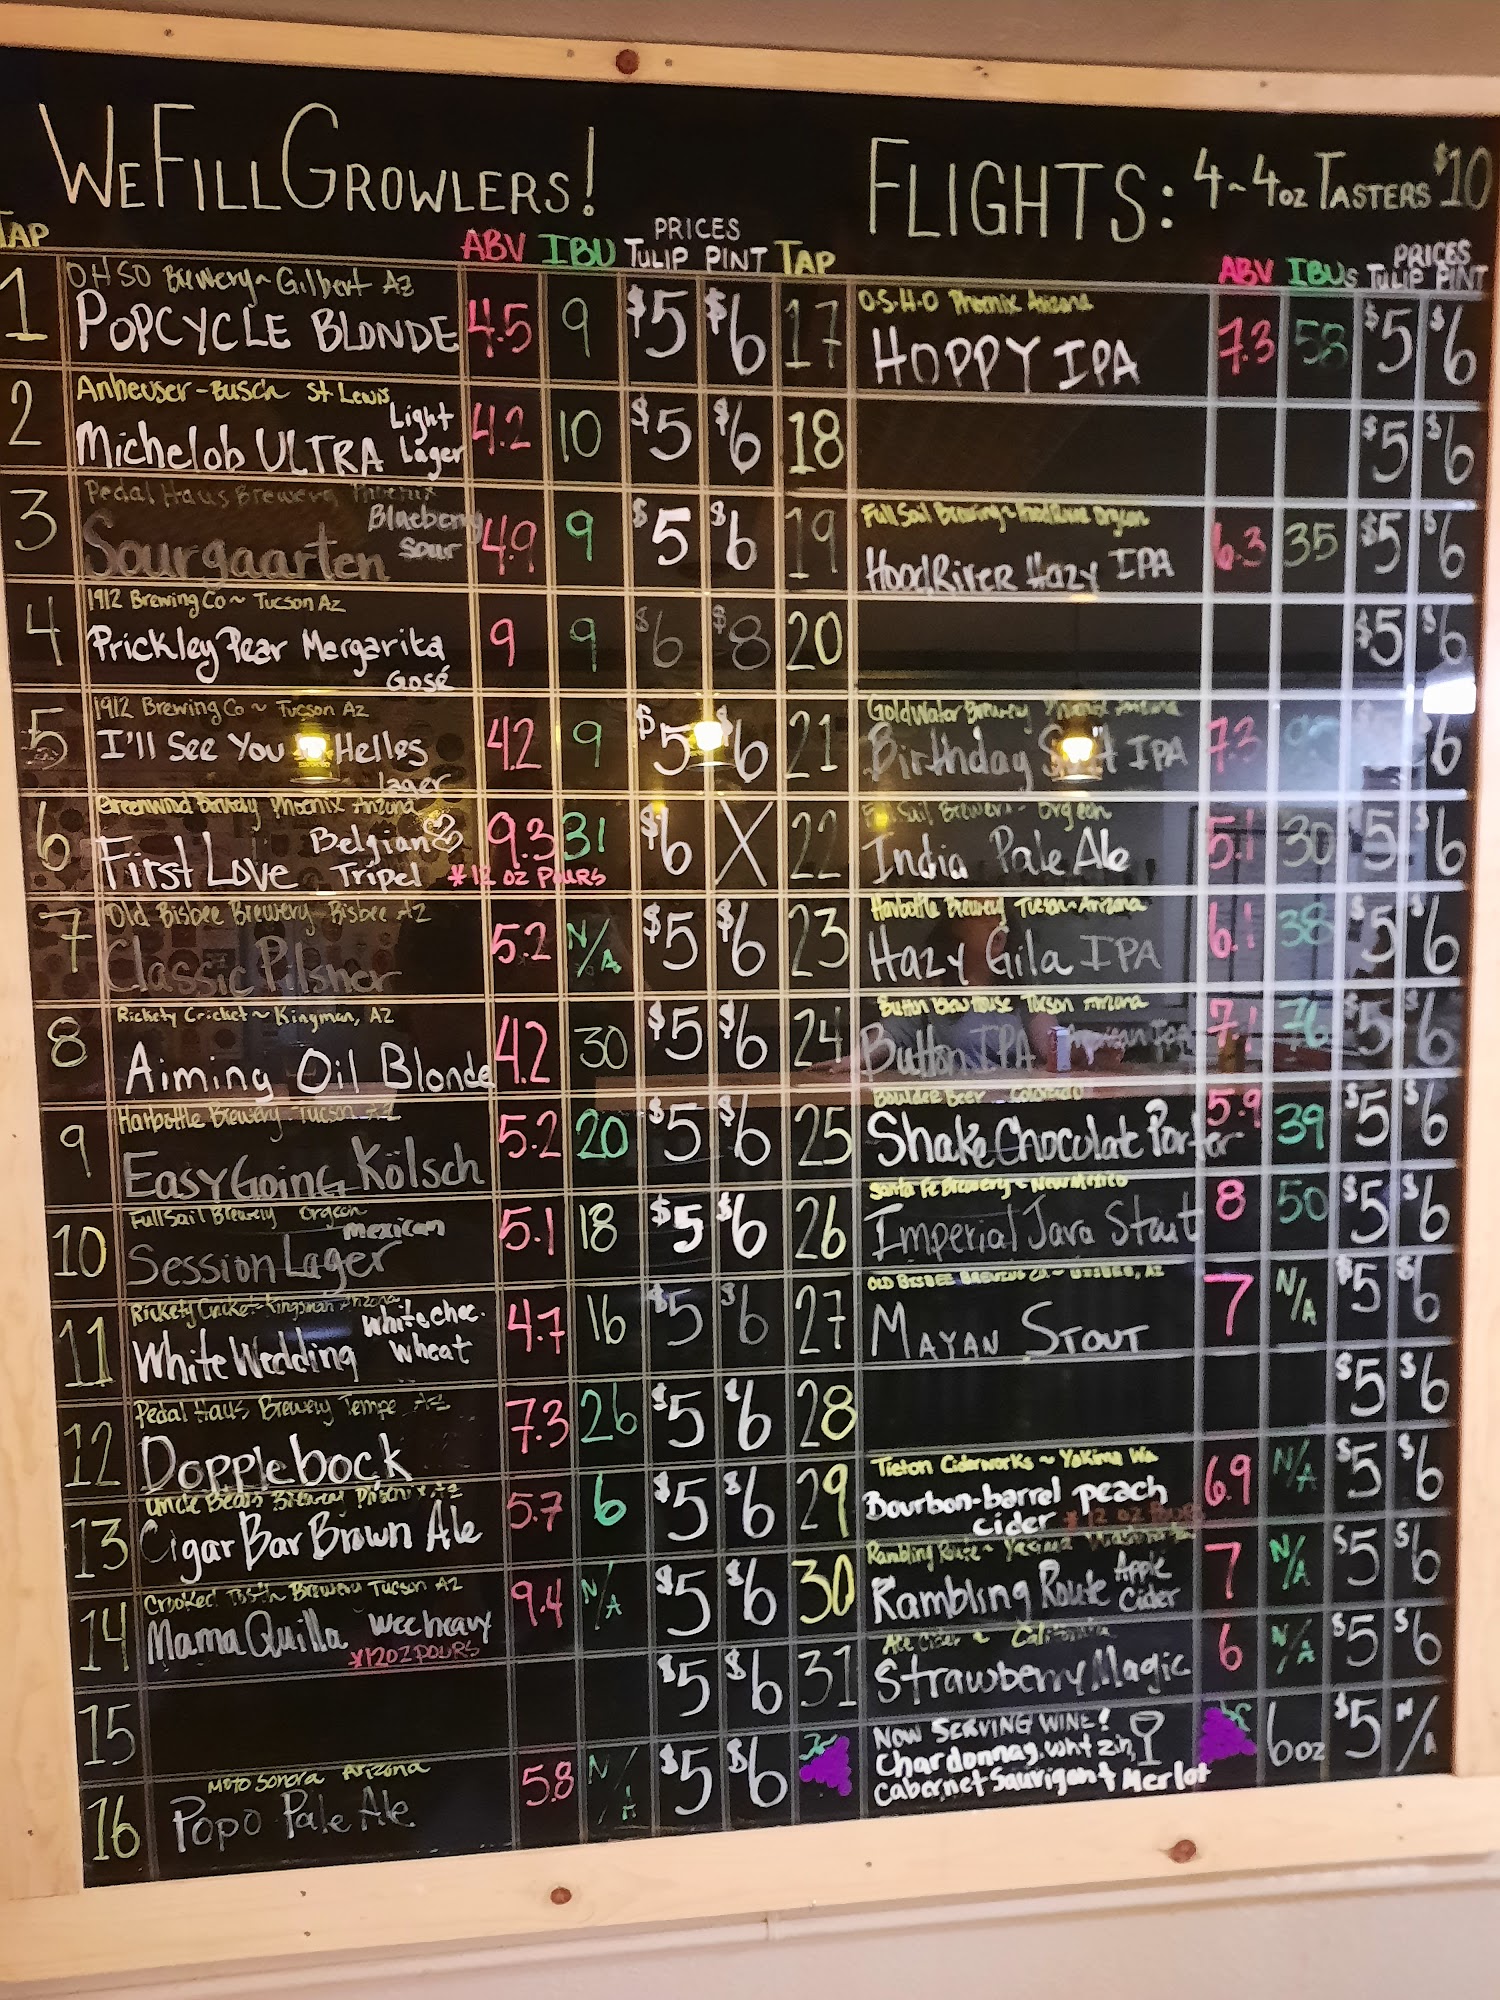 WeFillGrowlers!
FLIGHTS: 4~4oz TASTERS $10
TAP ABV IBU PRICES TULIP PINT
1 OHSO Brewery~Gilbert Az
POPCYCLE BLONDE 4.5 9 $5 $6
2 Anheuser-Busch St Lewis
Michelob ULTRA Light Lager 4.2 10 $5 $6
3 Pedal Haus Brewery Phoenix
Sourgaarten Blueberry Sour 4.9 9 $5 $6
4 1912 Brewing Co~ Tucson Az
Prickley Pear Margarita Gosé 9 9 $6 $8
5 1912 Brewing Co ~ Tucson Az
I'll See You Helles Lager 4.2 9 $5 $6
6 Phoenix Arizona
First Love Belgian Tripel 9.3 31 $6 X
*12 oz POURS
7 Old Bisbee Brewery Bisbee AZ
Classic Pilsner 5.2 N/A $5 $6
8 Rickety Cricket~Kingman, AZ
Aiming Oil Blonde 4.2 30 $5 $6
9 Harbottle Brewery Tucson AZ
EasyGoing Kölsch 5.2 20 $5 $6
10 Full Sail Brewery Orgeon
Session Lager mexican 5.1 18 $5 $6
11 Rickety Cricket-Kingsman Arizona
White Wedding white choc. wheat 4.7 16 $5 $6
12 Pedal Haus Brewery Tempe AZ
Dopplebock 7.3 26 $5 $6
13 Uncle Bears Brewery
Cigar Bar Brown Ale 5.7 6 $5 $6
14 Crooked Tooth Brewery Tucson AZ
Mama Quilla wee heavy 9.4 N/A $5 $6
*12OZ POURS
15 $5 $6
16 Moto Sonora Arizona
Popo Pale Ale 5.8 N/A $5 $6
TAP ABV IBUs PRICES TULIP PINT
17 O.S.H.O Phoenix Arizona
HOPPY IPA 7.3 58 $5 $6
18 $5 $6
19 Full Sail Brewing~Hood River Orgeon
Hood River Hazy IPA 6.3 35 $5 $6
20 $5 $6
21 GoldWater Brewery Phoenix Arizona
Birthday IPA 7.3 $6
22 Full Sail Brewery- Orgeon
India Pale Ale 5.1 30 $5 $6
23 Harbottle Brewery Tucson~Arizona
Hazy Gila IPA 6.1 38 $5 $6
24 Button Brew House Tucson Arizona
Button IPA American IPA 7.1 76 $5 $6
25 Boulder Beer Colorado
Shake Chocolate Porter 5.9 39 $5 $6
26 Santa Fe Brewery~New Mexico
Imperial Java Stout 8 50 $5 $6
27 OLD BISBEE BREWING CO.~ BISBEE, AZ
MAYAN STOUT 7 N/A $5 $6
28 $5 $6
29 Tieton Ciderworks ~ Yakima Wa
Bourbon-barrel peach cider *12 OZ POURS 6.9 N/A $5 $6
30 Rambling Route~ Yakima Washington
Rambling Route Apple Cider 7 N/A $5 $6
31 Ace Cider ~ California
Strawberry Magic 6 N/A $5 $6
NOW SERVING WINE!
Chardonnay, wht zin,
Cabernet Sauvigan & Merlot 6oz $5 N/A